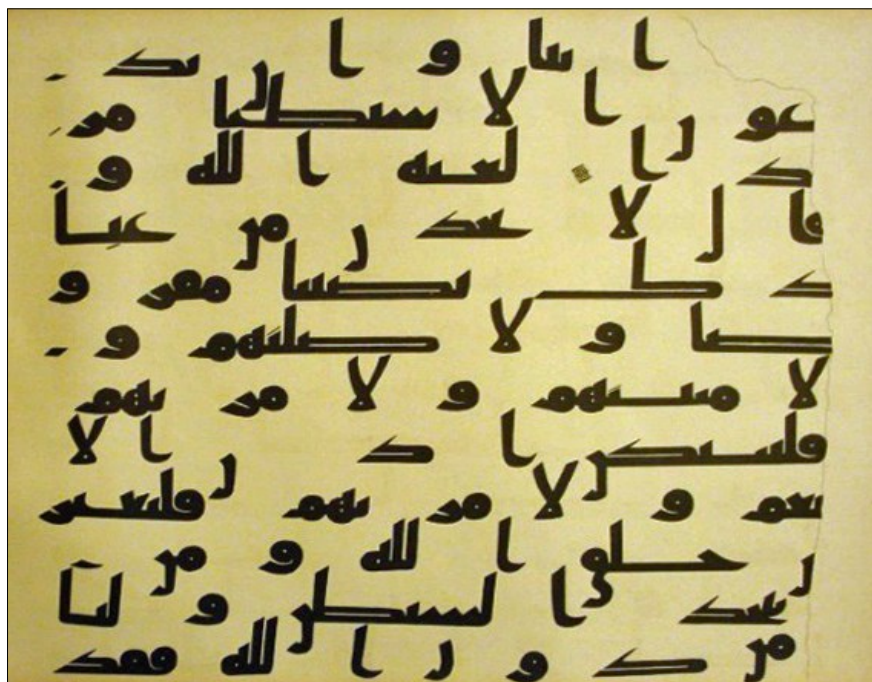 انثا وان يد
عون الا شيطنا مر
يدا لعنه الله و
قال لاتخذن من عبا
دك نصيبا مفرو
ضا ولاضلنهم و
لامنينهم ولامرنهم
فليبتكن اذان الا
نعم ولامرنهم فليغير
ن خلق الله ومن
يتخذ الشيطن وليا
من دون الله فقد